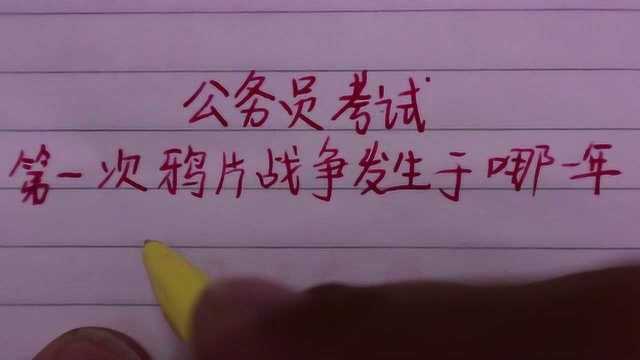 公务员考试
第一次鸦片战争发生于哪一年